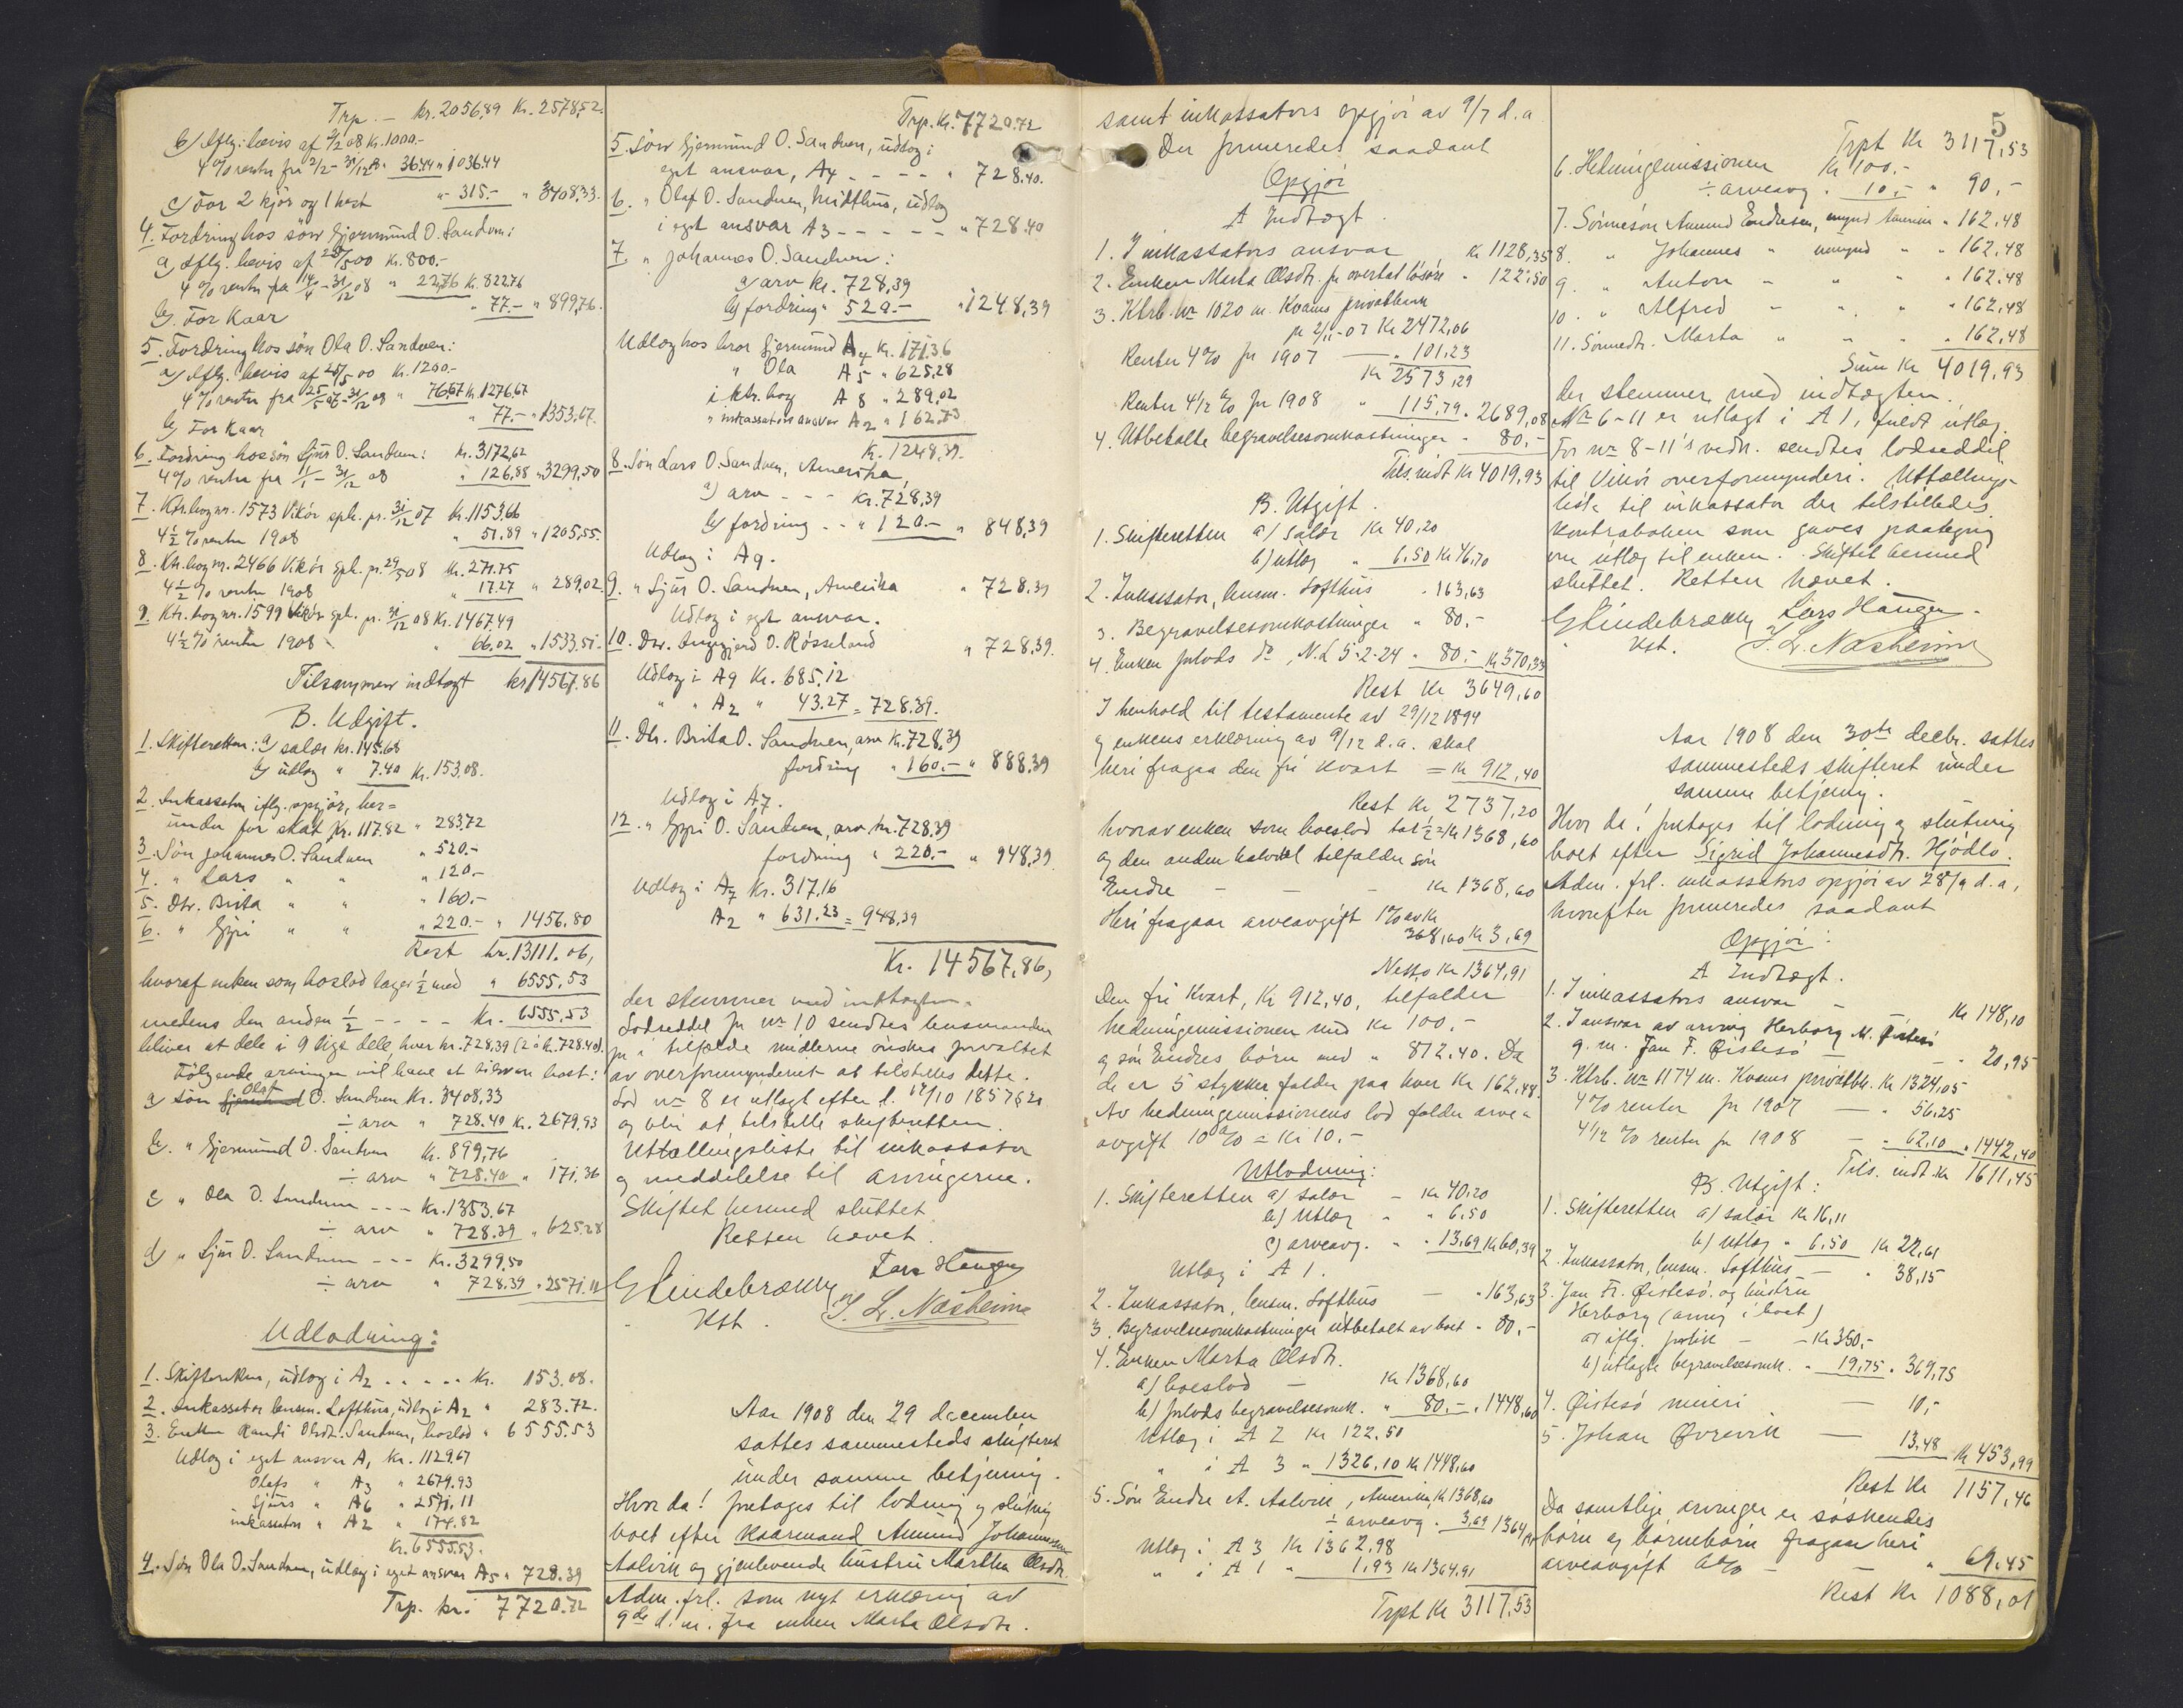 Trp. — kr. 2056,89 Kr. 2578,52.
b) Iflg. bevis af 2/2 08 Kr. 1000.-
4 % renter fra 2/2 - 31/12 08 " 36.44 " 1036.44
c) For 2 kjör og 1 hest " 315.- " 3408,33.
4. Fordring hos sön Gjermund O. Sandven:
a) Iflg. bevis af 25/5 00 Kr. 800.-
4 % renter fra 14/4 - 31/12 08 " 22,76 K. 822.76
b). For Kaar " 77.- " 899,76.
5. Fordring hos sön Ola O. Sandven:
a) Iflg. bevis af 25/5 00 Kr. 1200.-
4 % renter fra 25/5 07 - 31/12 08 " 76,67 Kr. 1276,67
b) For Kaar " 77.- " 1353,67.
6. Fordring hos sön Sjur O. Sandven: Kr. 3172,62
4 % renter fra 1/1 - 31/12 08 " 126,88 " 3299,50
7. Ktr.bog nr. 1573 Vikör spb. pr. 31/12 07 Kr. 1153.66
4 1/2 % renter 1908 " 51.89 " 1205,55.
8. Ktr.bog nr. 2466 Vikör spb. pr. 29/5 08 Kr. 271.75
4 1/2 % renter 1908 " 17.27 " 289,02
9. Ktr. bog nr. 1599 Vikör spb. pr. 31/12 08 Kr. 1467.49
4 1/2 % renter 1908 " 66.02 " 1533.51.
Tilsammen indtægt kr. 14567.86
B. Udgift.
1. Skifteretten: a) salær kr. 145.68
b) utlæg " 7.40 Kr. 153.08.
2. Inkassator iflg. opgjör, her=
under for skat Kr. 117.82 " 283.72
3. Sön Johannes O. Sandven " 520.-
4. " Lars " " " 120.-
5. Dtr. Brita " " " 160.-
6. " Gyri " " " 220.- " 1456.80
Rest kr. 13111.06,
hvoraf enken som boslod tager 1/2 med " 6555,53
medens den anden 1/2 - - - - Kr. 6555.53
bliver at dele i 9 lige dele, hver kr. 728,39 (2 á k. 728.40).
Følgende arvinger vil have at tilsvare boet:
a) sön Olaf O. Sandven Kr. 3408,33
÷ arv " 728.40 K. 2679.93
b. " Gjermund O. Sandven Kr. 899,76
÷ arv " 728.40 " 171,36
c " Ola O. Sandven - - - Kr. 1353.67
÷ arv " 728.39 " 625.28
d) " Sjur O. Sandven - - - Kr. 3299,50
÷ arv " 728.39 " 2571.11
Udlodning:
1. Skifteretten, udlæg i A2 - - - - Kr. 153.08.
2. Inkassator lensm. Lofthus, udlæg i A2 " 283.72.
3. Enken Randi Olsdr. Sandven, boslod " 6555.53
Udlæg i eget ansvar A1 Kr. 1129.67
Olafs " A3 " 2679.93
Sjurs " A6 " 2571.11
inkassators " A2 " 174.82
Kr. 6555.53.
4. Sön Ola O. Sandven, udlæg i eget ansvar A5 " 728.39
Trp. kr. 7720.72
Trp. Kr. 7720.72
5. Sön Gjermund O. Sandven, udlæg i
eget ansvar, A4 - - - - " 728.40.
6. " Olaf O. Sandven, Midthus, udlæg
i eget ansvar A3 - - - - - " 728.40
7. " Johannes O. Sandven:
a) arv Kr. 728,39
b) fordring " 520.- " 1248,39
Udlæg hos bror Gjermund A4 Kr. 171.36
" Ola A5 " 625.28
i ktr. bog A8 " 289,02
" inkassators ansvar A2 " 162.73
Kr. 1248,39.
8. Sön Lars O. Sandven, Amerika,
a) arv - - - Kr. 728,39
b) fordring - - " 120.- " 848,39
Udlæg i A9.
9. " Sjur O. Sandven, Amerika " 728.39
Udlæg i eget ansvar.
10. Dtr. Ingegjerd O. Røsseland " 728.39.
Udlæg i A9 Kr. 685.12
" " A2 " 43.27 = 728.39.
11. Dtr. Brita O. Sandven, arv Kr. 728,39
fordring " 160.- " 888.39
Udlæg i A7.
12. " Gyri O. Sandven, arv kr. 728,39
fordring " 220.- " 948,39.
Udlæg i A7 Kr. 317,16
A2 " 631.23 = 948,39
Kr. 14567,86,
der stemmer med indtægten.
Lodseddel for No 10 sendtes lensmanden
for i tilfælde midlerne önskes forvaltet
av overformynderiet at tilstilles dette.
Lod no 8 er utlagt efter d.
og blir at tilstille skifteretten.
Uttællingsliste til inkassator
og meddelelse til arvingerne.
Skiftet hermed sluttet
Retten hævet.
G Lindebrække Lars Haugen
Kst. S. L. Næsheim
Aar 1908 den 29 december
sattes sammesteds skifteret
under samme betjening.
Hvor da! foretoges til lodning og slutning
boet efter Kaarmand Amund Johannessen
Aalvik og gjenlevende hustru Martha Olsdtr.
Adm. frl. som nyt erklæring av
9de d. m. fra enken Marta Olsdtr.
samt inkassators opgjör av 9/7 d. a
Der formeredes saadant
Opgjör
A Indtægt.
1. I inkassators ansvar K 1128,35
2. Enken Marta Olsdtr. for overtat lösöre " 122,50
3. Ktrb. No 1020 m. Kvams privatbank
pr 2/11-07 Kr 2472,06
Renter 4% for 1907 — " 101,23
Kr 2573,29
Renter 4 1/2 % for 1908 " 115,79 " 2689,08
4. Utbetalte begravelsesomkostninger " 80,-
Tils. indt Kr 4019,93
B. Utgift.
1. Skifteretten a) Salær Kr 40,20
b) utlæg " 6,50 Kr 46,70
2. Inkassator, lensm. Lofthus " 163,63
3. Begravelsesomkostninger " 80,-
4. Enken forlods do, N. L 5-2-24 " 80,- Kr 370,33
Rest Kr 3649,60
I henhold til testamente av 29/12 1894
og enkens erklæring av 9/12 d. a. skal
heri fragaa den fri kvart = Kr 912,40
Rest Kr 2737,20
hvorav enken som boeslod tar 1/2 = Kr 1368,60
og den anden halvdel tilfalder sön
Endre - - - Kr 1368,60
Heri fragaar arveavgift 1% av Kr
368,60 Kr 3,69
Netto Kr 1364,91
Den fri kvart, Kr 912,40, tilfalder
hedningemissionen med Kr 100,-
og sön Endres börn med " 812.40. Da
de er 5 stykker falder paa hver Kr 162,48.
Av hedningemissionens lod falder arve-
avgift 10% = Kr 10.-
Utlodning:
1. Skifteretten a) salær - Kr 40,20
b) Utlæg " " 6,50
c) arveavg. " " 13,69 Kr 60,39
Utlæg i A 1.
2. Inkassator, lensm. Lofthus — " 163,63
3. Begravelsesomkostninger utbetalt av boet " 80,-
4. Enken Marta Olsdtr.
a) boeslod - Kr 1368,60
b) forlods begravelsesomk. " 80,- " 1448,60
Utlæg i A 2 Kr 122,50
" i A 3 " 1326,10 Kr 1448,60
5. Sön Endre A. Aalvik, Amerika Kr 1368,60
÷ arveavg " 3,69 1364,91
Utlæg i A 3 Kr 1362,98
" i A 1 " 1,93 Kr 1364,91
Trpt Kr 3117,53
5
Trpt Kr 3117,53
6. Hedningemissionen Kr 100,-
÷ arveavg " 10,- " 90,-
7. Sönnesön Amund Endresen, umynd Amerika " 162,48
8. " Johannes " umynd " " 162,48
9. " Anton - " " " 162,48
10. " Alfred - " " " 162,48
11. Sönnedtr. Marta " " " 162,48
Sum Kr 4019,93
der stemmer med indtægten.
No 6-11 er utlagt i A 1, fuldt utlæg.
For No 8-11's vedk. sendtes lodseddel
til Vikör overformynderi. Uttællings-
liste til inkassator der tilstilledes
kontraboken som gaves paategning
om utlæg til enken. Skiftet hermed
sluttet. Retten hævet.
G Lindebrække Lars Haugen
Kst. S. L. Næsheim
Aar 1908 den 30te decbr. sattes
sammesteds skifteret under
samme betjening.
Hvor da! foretoges til lodning og slutning
boet efter Sigrid Johannesdtr. Hjödlo.
Adm. frl. inkassators opgjör av 28/9 d. a,
hvorefter formeredes saadant
Opgjör:
A Indtægt.
1. I inkassators ansvar - Kr 148,10
2. I ansvar av arving Herborg M. Östesö
g. m. Jan F. Östesö - - " 20,95
3. Ktrb. No 1174 m. Kvams privatbk. Kr 1324,05
4% renter for 1907 — " 56,25
4 1/2 % renter for 1908 - " 62,10 " 1442,40
Tils. indt. Kr 1611,45
B. Utgift:
1. Skifteretten a) salær Kr 16,11
b) Utlæg " 6,50 Kr 22,61
2. Inkassator, lensm. Lofthus — " 38,15
3. Jan Fr. Östesö og hustru
Herborg (arving i boet)
a) iflg. forlik - - Kr 350,-
b) utlagte begravelsesomk. " 19,75 " 369,75
4. Östesö meieri — 10,-
5. Johan Övrevik — 13,48 Kr 453,99
Rest Kr 1157,46
Da samtlige arvinger er söskendes
börn og börnebörn fragaar heri
arveavgift 6% - " 69,45
Rest Kr 1088,01